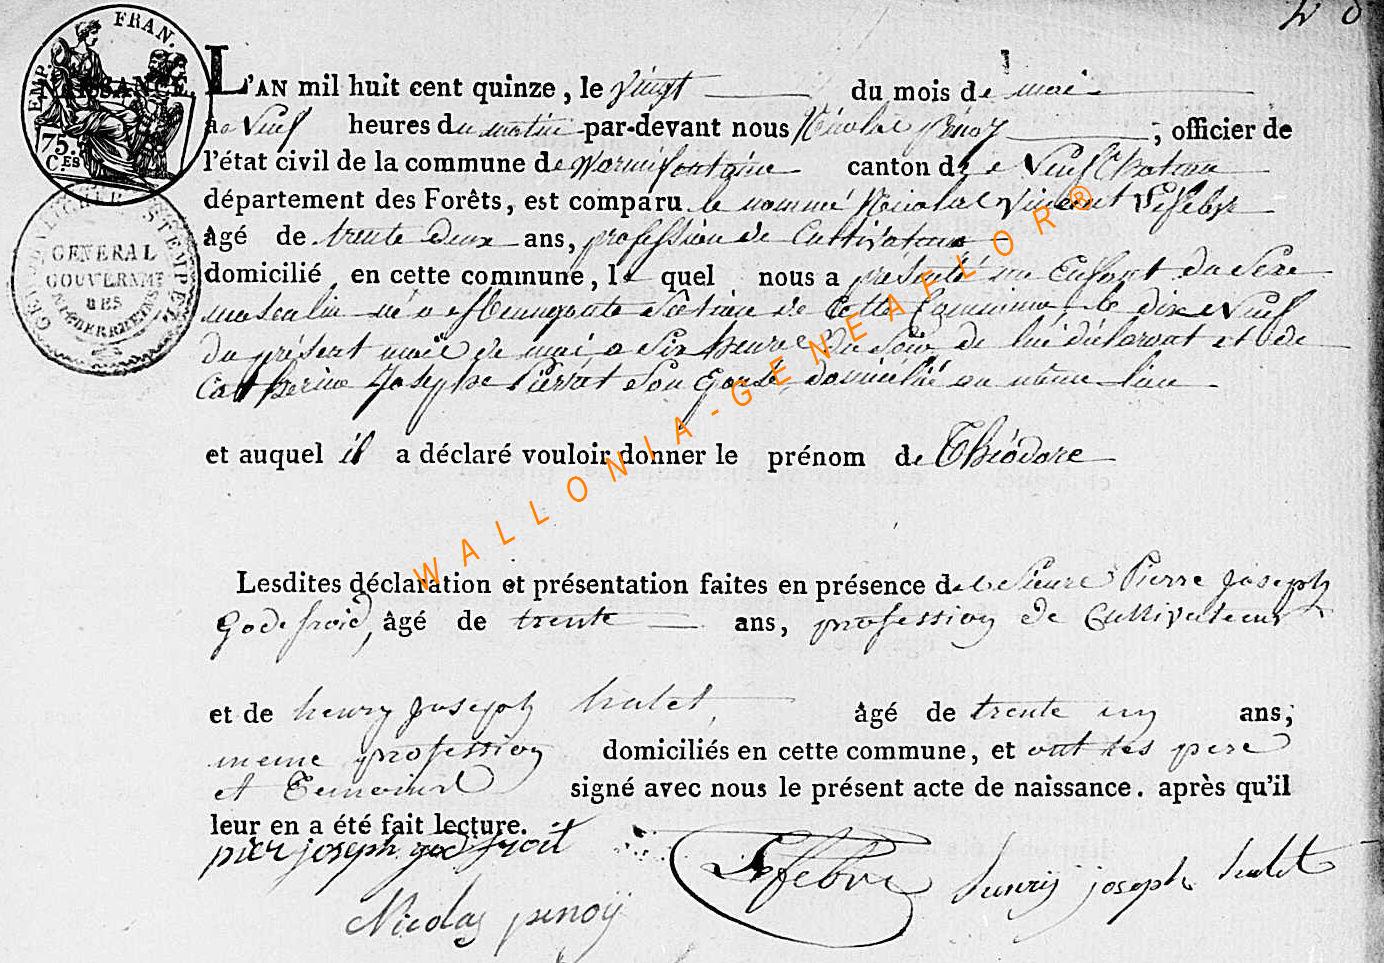 EMP. FRAN.
75.
C.ES
NAISSANCE.
L'AN mil huit cent quinze, le vingt du mois de mai
à neuf heures du matin par-devant nous Nicolas pinoy, officier de
l'état civil de la commune de Warmifontaine canton de Neufchateau
département des Forêts, est comparu le nommé Nicolas Vincent Lefebvre
âgé de trente deux ans, profession de Cultivateur
domicilié en cette commune, le quel nous a présenté un Enfant du Sexe
masculin né a section de Cette Commune le dix Neuf
du présent mois de mai a Six heures du Soir de lui déclarant et de
Catherine Josephe Pierret Son Epouse domiciliée au même lieu
et auquel il a déclaré vouloir donner le prénom de Théodore
Lesdites déclaration et présentation faites en présence de Sieurs Pierre joseph
godefroid, âgé de trente ans, profession de Cultivateur
et de henry joseph halet âgé de trente un ans;
meme profession domiciliés en cette commune, et ont les pere
et Temoins signé avec nous le présent acte de naissance. après qu'il
leur en a été fait lecture.
pier joseph godfroit
Lefebvre henry joseph halet
Nicolas pinoÿ
GENERAL
GOUVERNMT
DES
NIEDERRHEINS
STEMPEL
WALLONIA-GENEAFLOR®